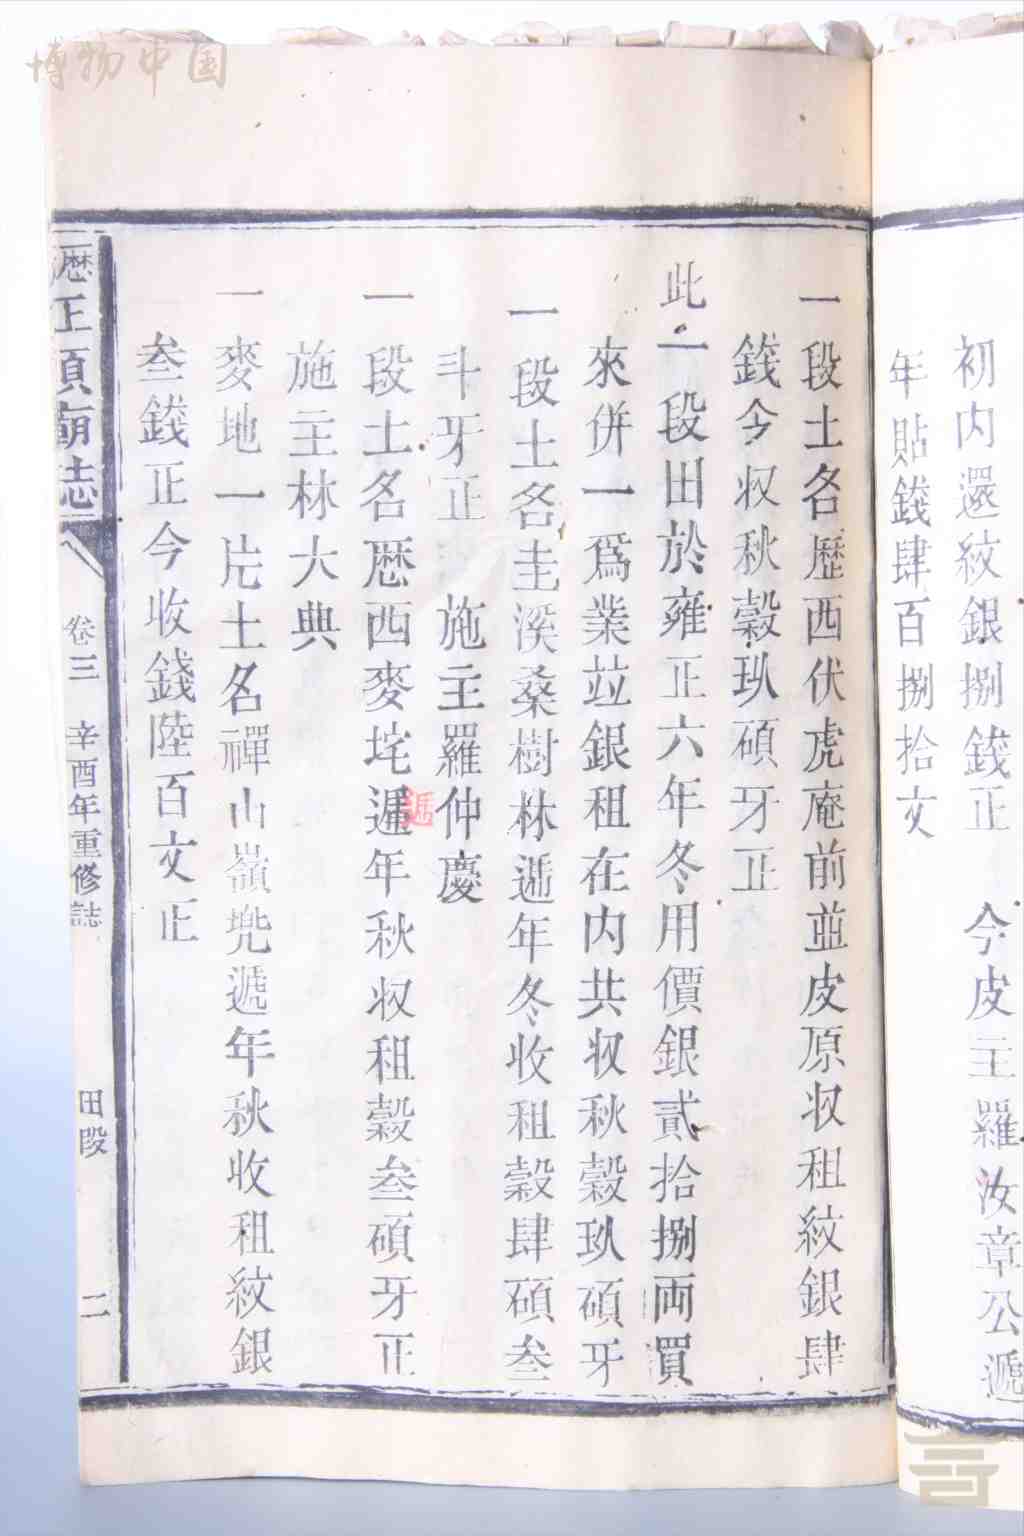 博物中国
初内還紋銀捌錢正 今皮主羅汝章公遞
年貼錢肆百捌拾文
一段土名歷西伏虎庵前並皮原収租紋銀肆
錢今収秋穀玖碩牙正
此一段田於雍正六年冬用價銀貳拾捌両買
來併一爲業竝銀租在内共収秋穀玖碩牙
一段土名圭溪桑樹林遞年冬收租穀肆碩叁
斗牙正 施主羅仲慶
一段土名歴西麥垞遞年秋収租穀叁碩牙正
遞
施主林大典
一麥地一片土名禪山嶺兠遞年秋收租紋銀
叁錢正今收錢陸百文正
歴王頂廟志 卷三 辛酉年重修誌 田段 二